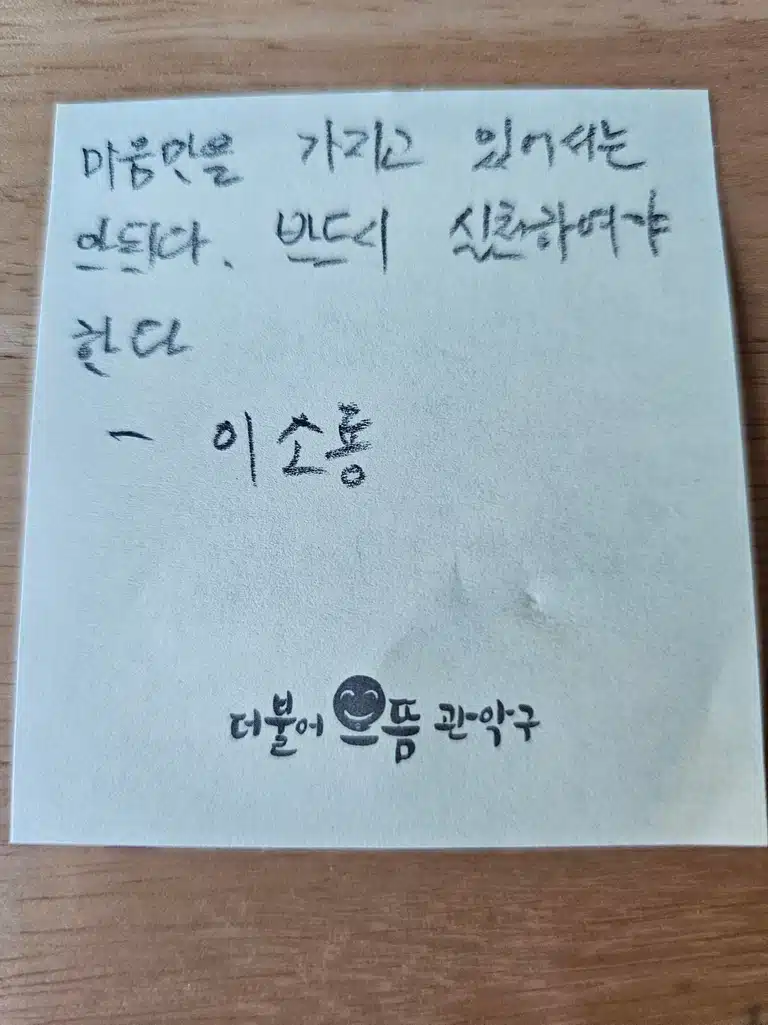 마음만을 가지고 있어서는
안된다. 반드시 실천하여야
한다
- 이소룡
더불어 으뜸 관악구